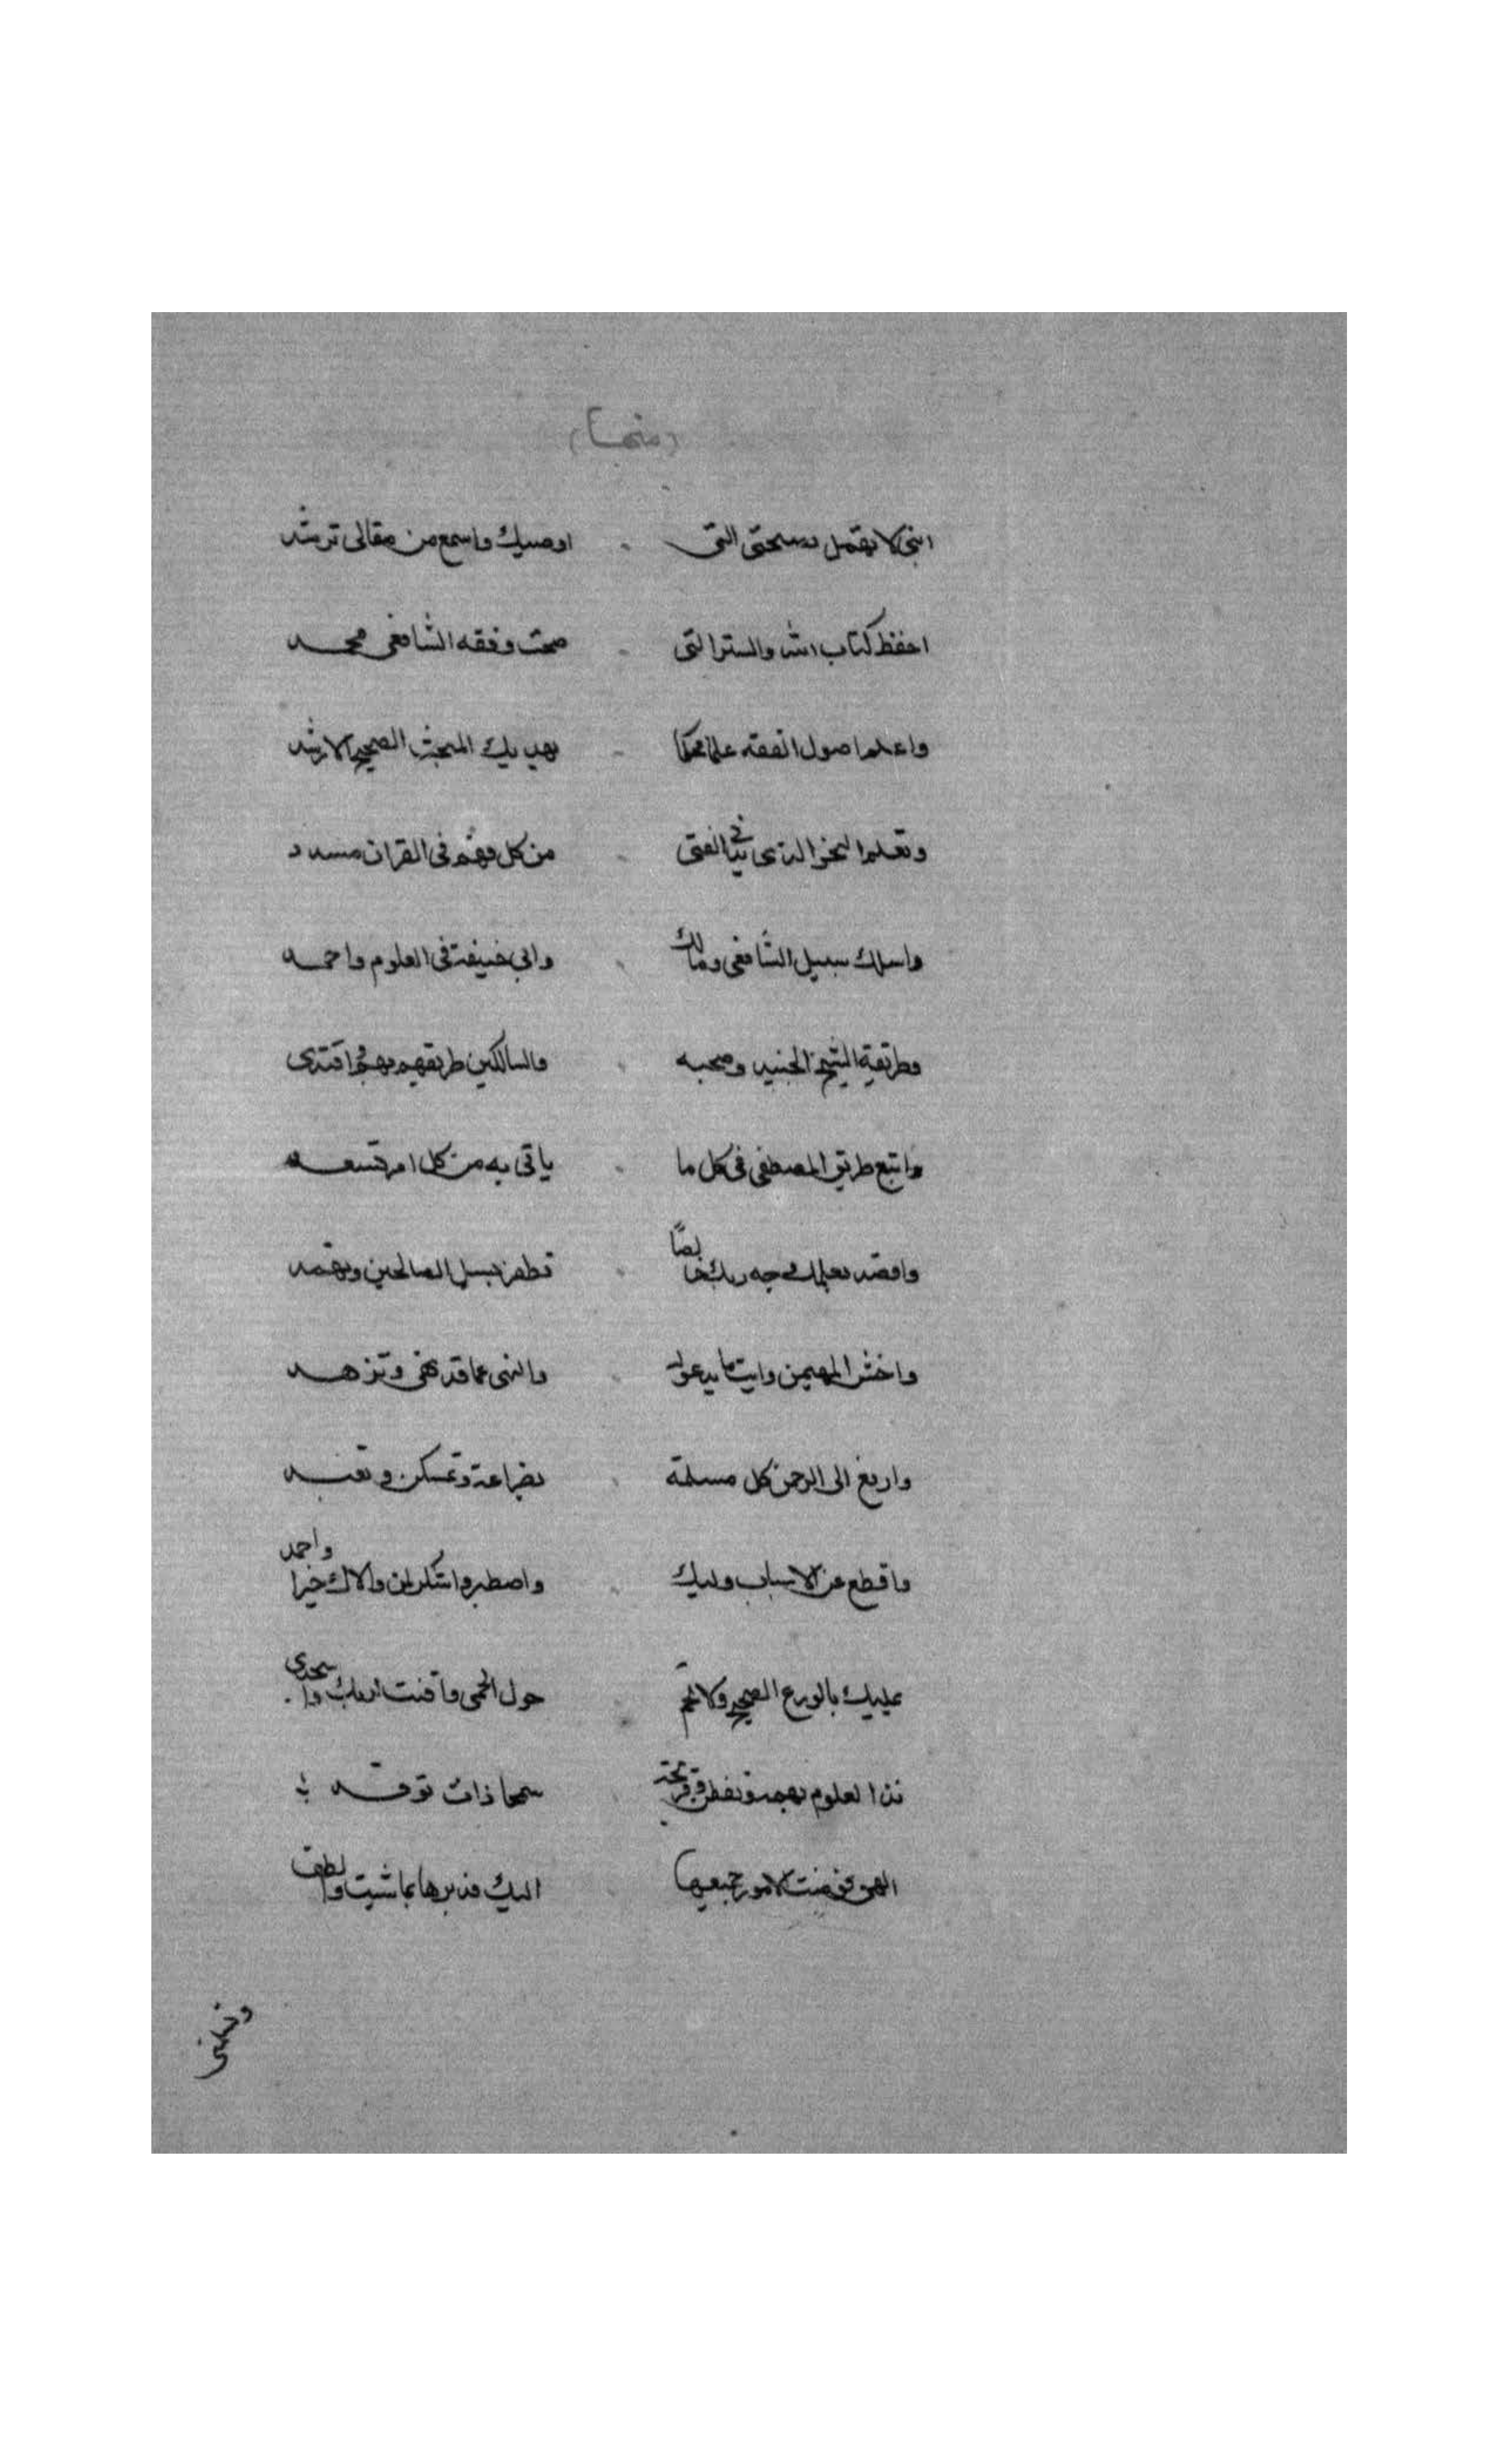 (منها)
ابني لا تهمل نصيحتي التي اوصيك واسمع من مقالي ترشد
احفظ كتاب الله والسنن التي صحت وفقه الشافعي محمد
واعلم اصول الفقه علما محكما يهديك المبحث الصحيح الارشد
وتعلم النحو الذي يدني الفتى من كل فهم في القران مسدد
واسلك سبيل الشافعي ومالك وابي حنيفة في العلوم واحمد
وطريقة الشيخ الجنيد وصحبه والسالكين طريقهم بهم اقتدى
واتبع طريق المصطفى في كل ما ياتي به من كل امر تسعد
واقصد بعلمك وجه ربك خالصا تظفر بسبيل الصالحين وتهتد
واخش المهيمن وايت ما يدعو له وانتهى عما قد نهى وتزهد
وارفع الى الرحمن كل مسلمة بضراعة وتمسكن وتعبد
واقطع عن الاسباب واصطبر واشكر لمن والاك خيرا واحمد
عليك بالورع الصحيح ولا تحم حول الحمى واقنت لربك واسجدي
العلوم بهمة وتفطن وقريحة سمحا ذات توقد
الهي فوضت الامور جميعها اليك فدبرها بما شيت والطف